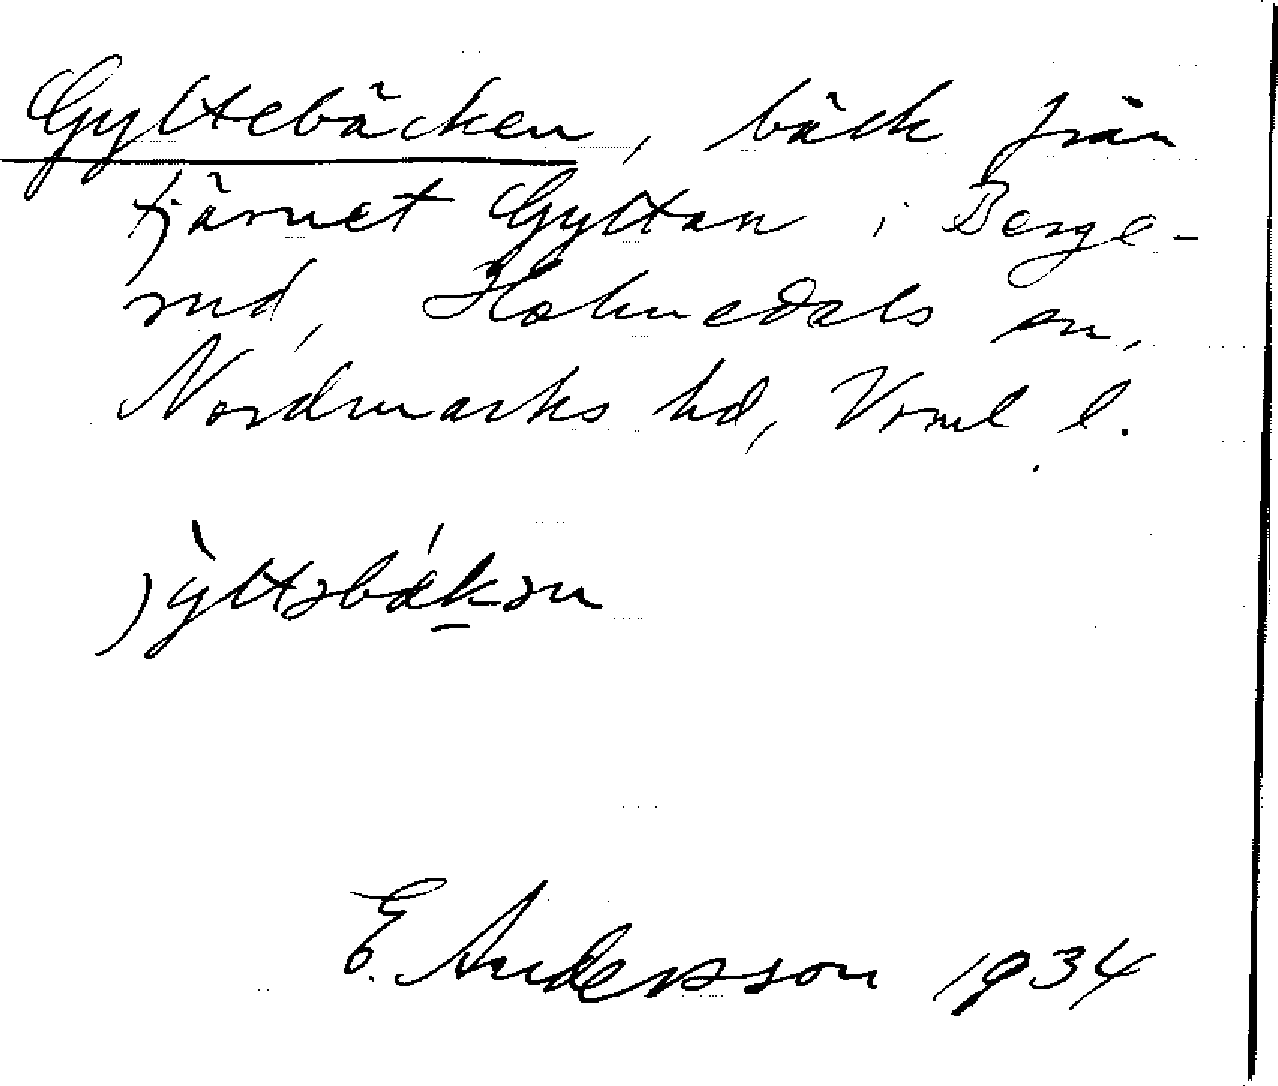 Gyltebäcken, bäck från
tjärnet Gyltan i Berge-
rud, Holmedals sn,
Nordmarks hd, Vrml l.
jỳltəbækən
E. Andersson 1934